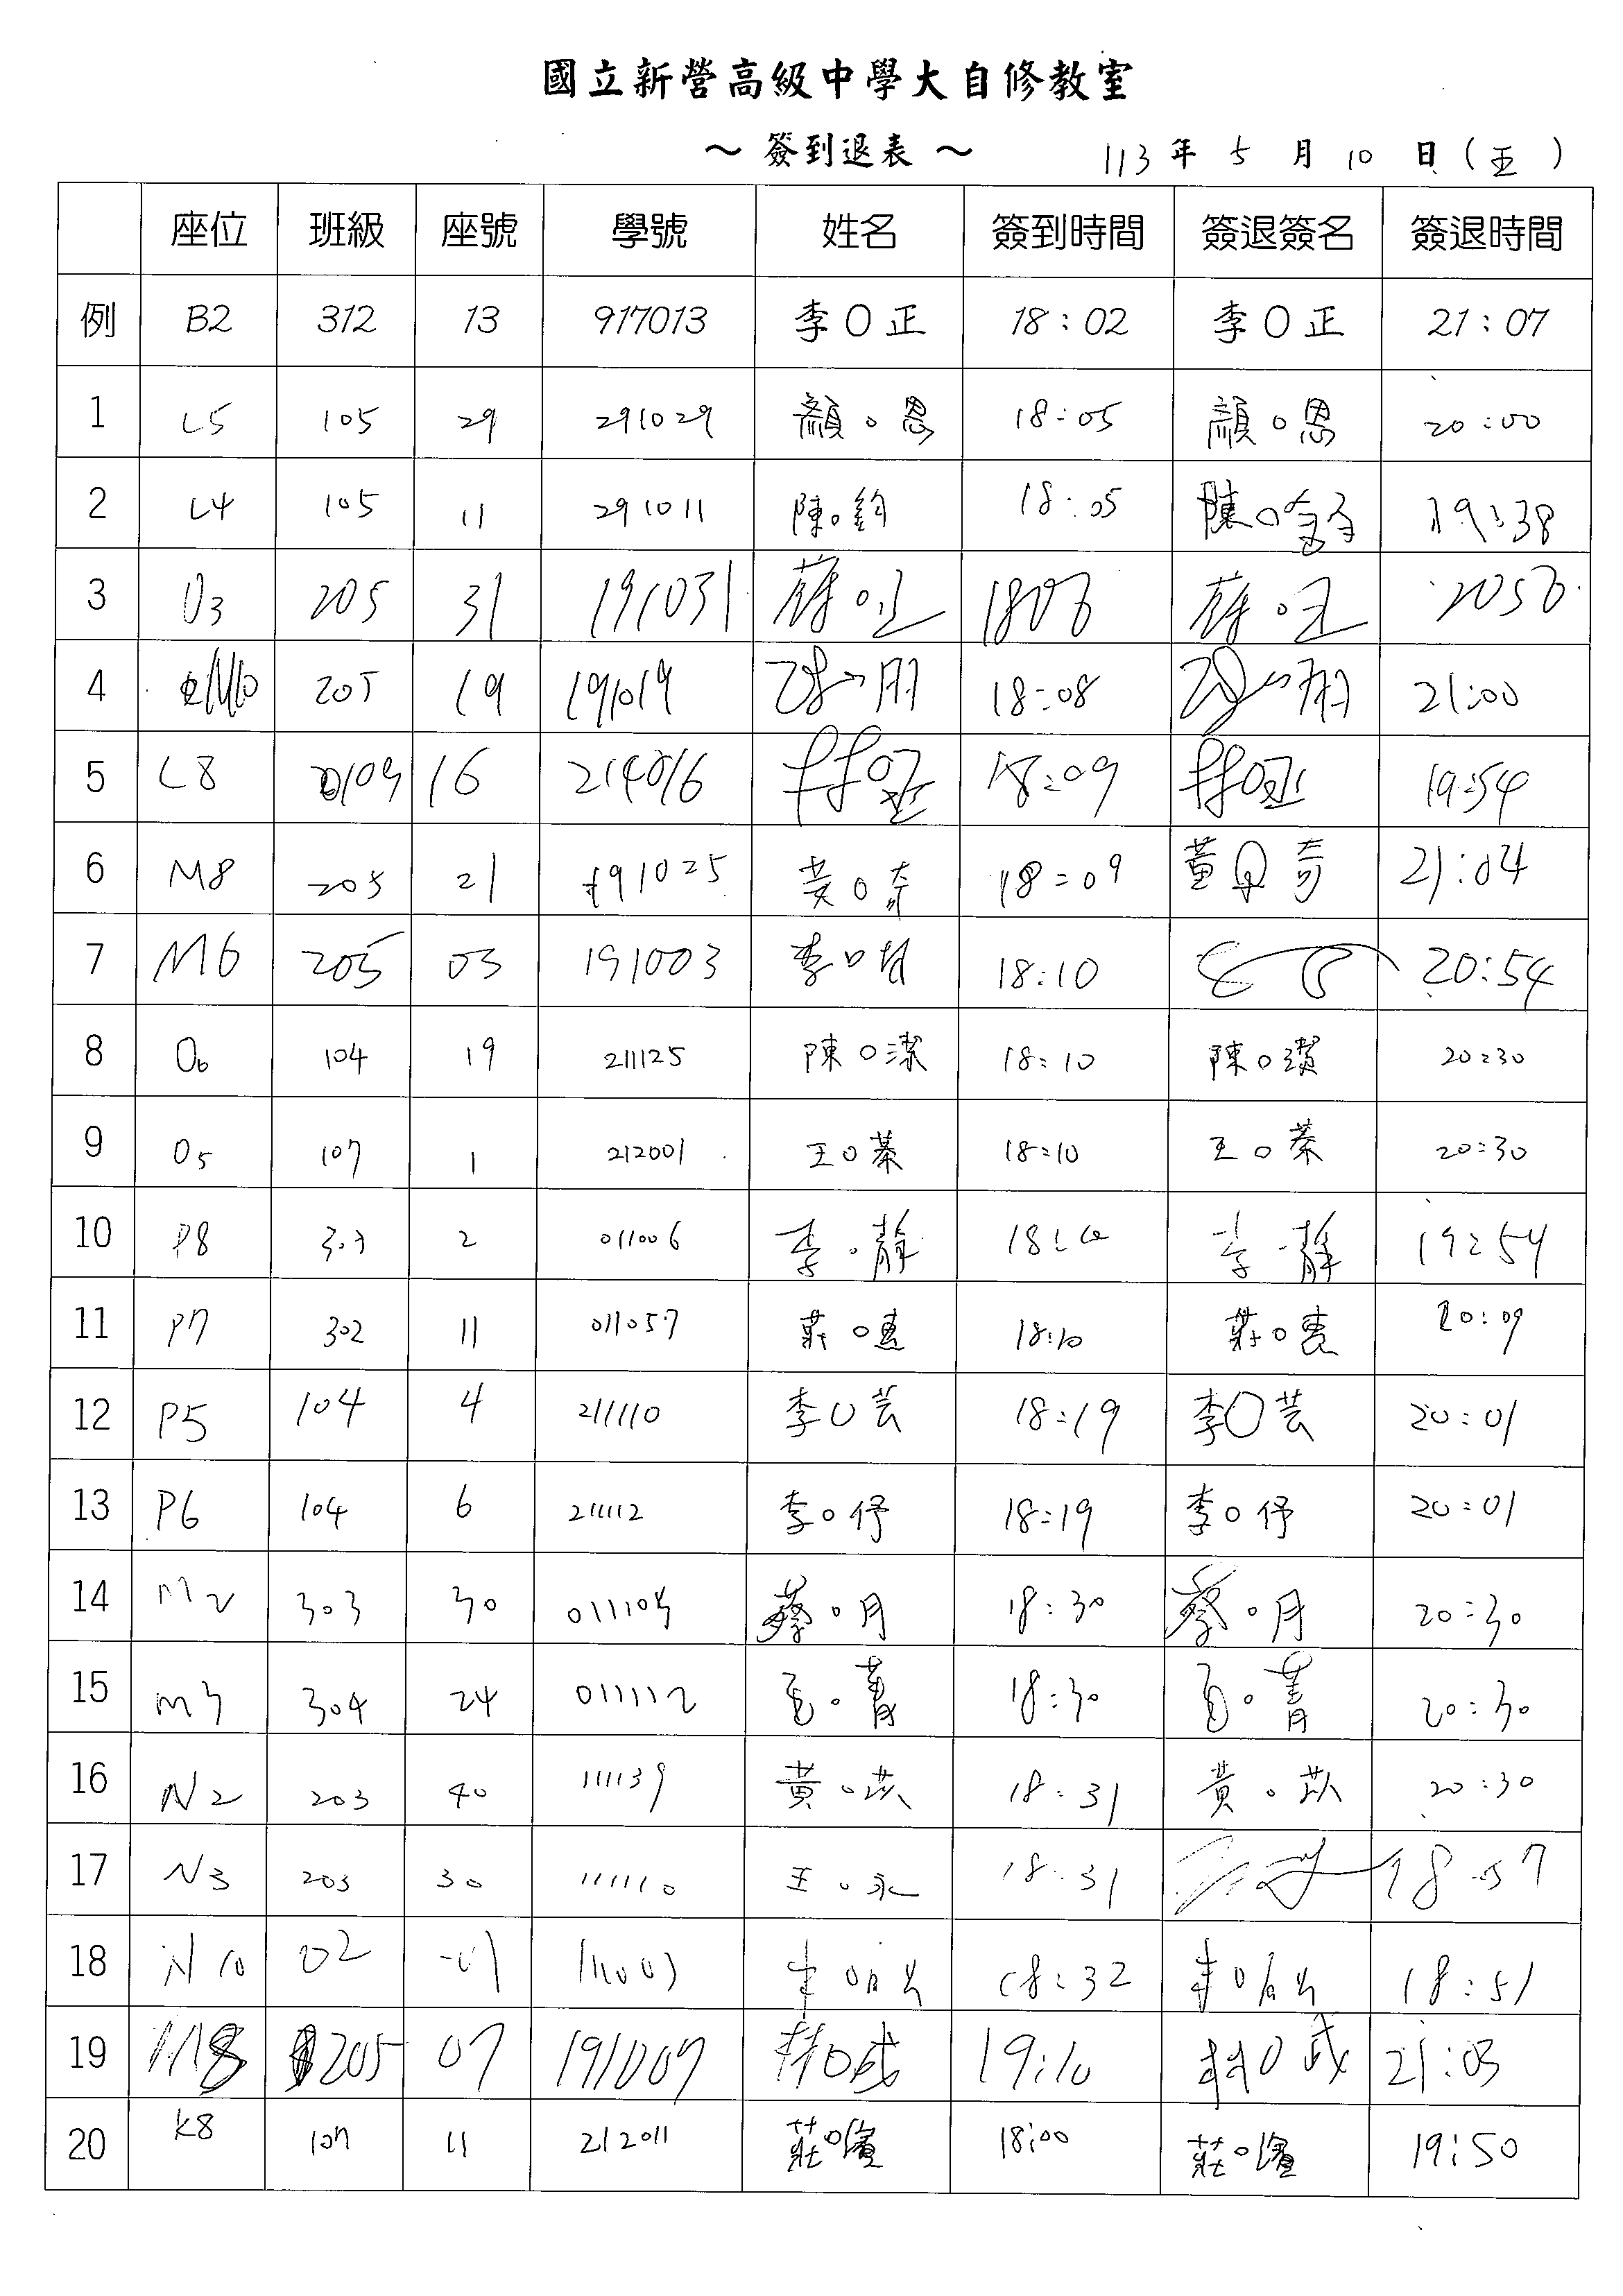 國立新營高級中學大自修教室
～ 簽到退表 ～ 113 年 5 月 10 日 ( 五 )
座位 班級 座號 學號 姓名 簽到時間 簽退簽名 簽退時間
例 B2 312 13 917013 李O正 18:02 李O正 21:07
1 L5 105 29 291029 顏o恩 18:05 顏o恩 20:00
2 L4 105 11 291011 陳o鈞 18:05 陳o 19:38
3 O3 205 31 191031 1806 2056
4 M10 205 19 191019 18:08 21:00
5 L8 109 16 214016 林O 18:09 林O 19:54
6 M8 205 21 191025 黃O奇 18:09 21:04
7 M6 205 03 191003 李O 18:10 20:54
8 O6 104 19 211125 陳O潔 18:10 陳O潔 20:30
9 O5 107 1 212001 王O蓁 18:10 王O蓁 20:30
10 P8 303 2 011006 李o靜 18:10 李o靜 19:54
11 P7 302 11 011057 莊O惠 18:10 莊O惠 20:09
12 P5 104 4 211110 李O芸 18:19 李O芸 20:01
13 P6 104 6 211112 李O伃 18:19 李O伃 20:01
14 M2 303 30 011104 蔡o月 18:30 蔡o月 20:30
15 M3 304 24 011112 o菁 18:30 o菁 20:30
16 N2 203 40 111139 黃o苡 18:31 黃o苡 20:30
17 N3 203 30 111110 王o永 18:31 18:57
18 N10 02 18:32 18:51
19 M8 205 07 191007 林O成 19:10 林O成 21:03
20 K8 107 11 212011 莊O濱 18:00 莊O濱 19:50